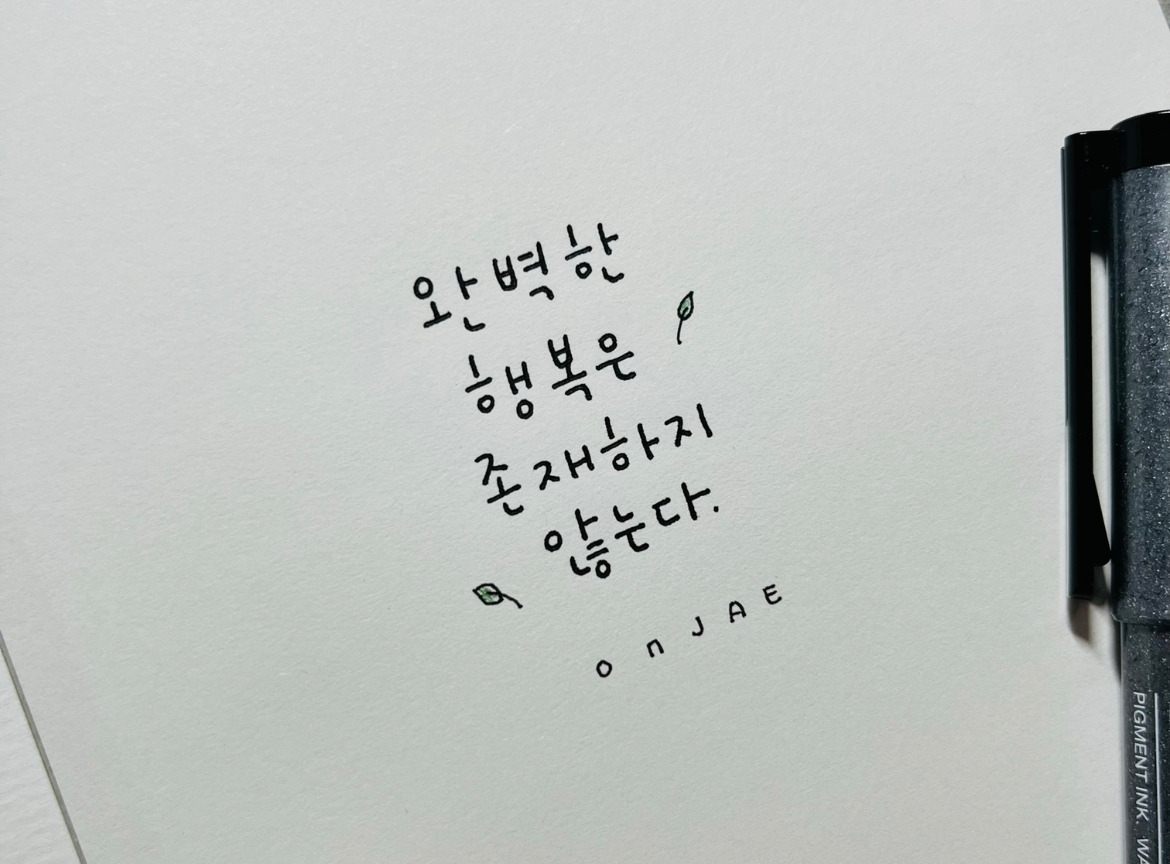 완벽한
행복은
존재하지
않는다.
onJAE
PIGMENT INK.